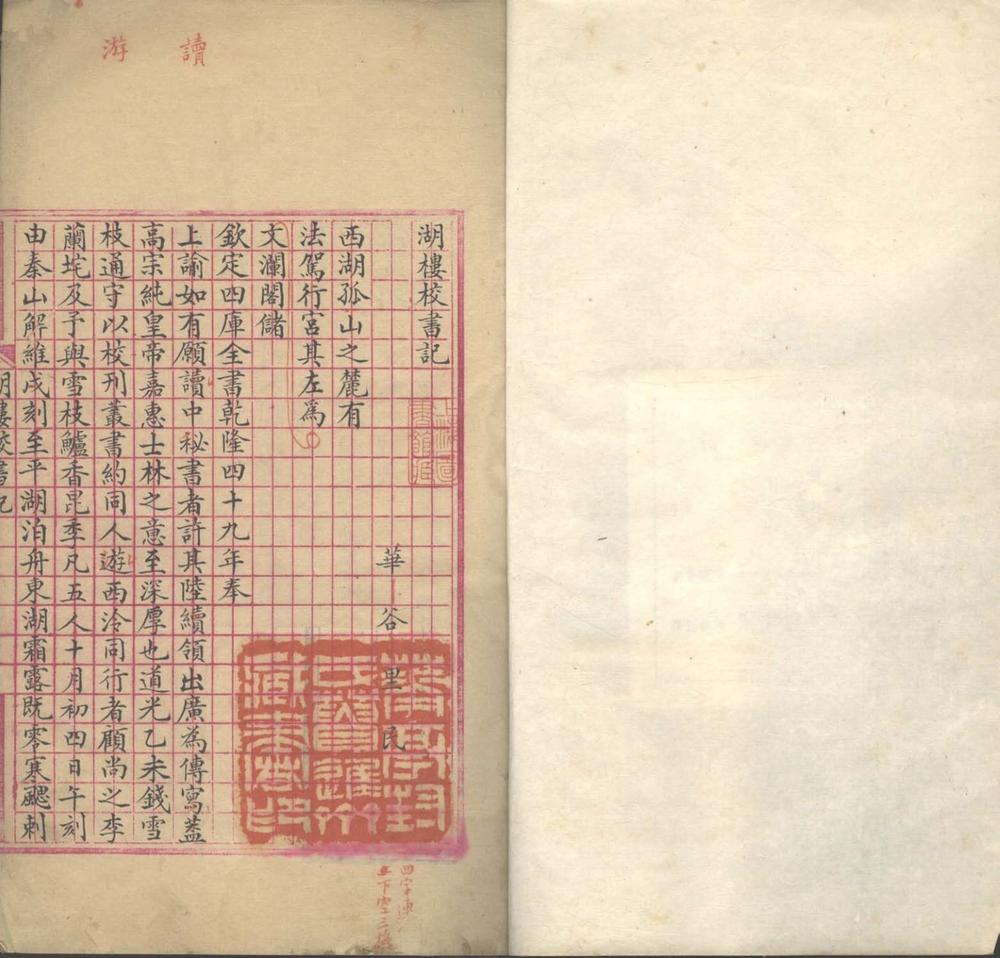 讀
游
湖樓校書記
華谷里民
西湖孤山之麓有
法駕行宮其左爲
文瀾閣儲
欽定四庫全書乾隆四十九年奉
上諭如有願讀中秘書者許其陸續領出廣為傳寫蓋
高宗純皇帝嘉惠士林之意至深厚也道光乙未錢雪
枝通守以校刊叢書約同人遊西泠同行者顧尚之李
蘭垞及予與雪枝鱸香昆季凡五人十月初四日午刻
由秦山解維戌刻至平湖泊舟東湖霜露既零寒颸刺
湖樓校書記
四字連
下空三格